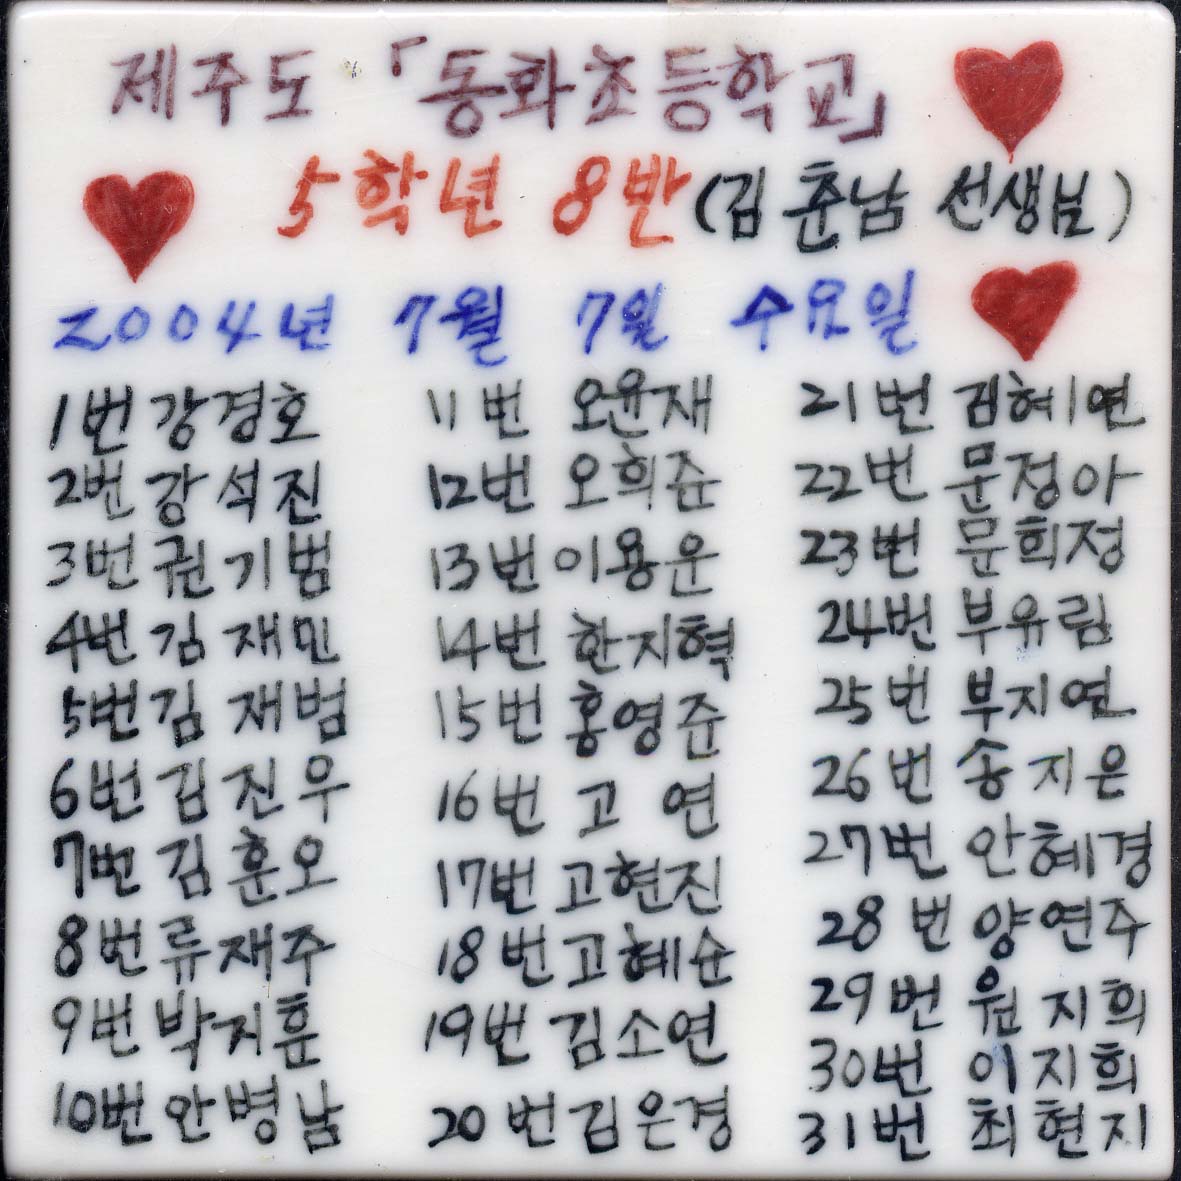 제주도 「동화초등학교」
5학년 8반(김춘남 선생님)
2004년 7월 7일 수요일
1번 강경호
2번 강석진
3번 권기범
4번 김재민
5번 김재범
6번 김진우
7번 김훈오
8번 류재주
9번 박지훈
10번 안병남
11번 오윤재
12번 오희준
13번 이용운
14번 한지혁
15번 홍영준
16번 고 연
17번 고현진
18번 고혜순
19번 김소연
20번 김은경
21번 김혜연
22번 문정아
23번 문희정
24번 부유림
25번 부지연
26번 송지은
27번 안혜경
28번 양연주
29번 원지희
30번 이지희
31번 최현지